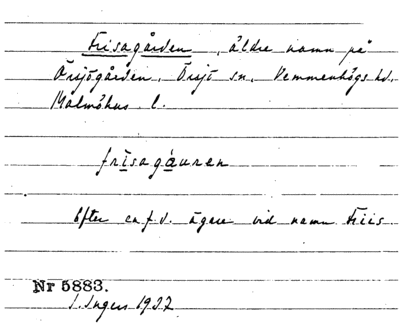 Frisagården, äldre namn på
Örsjögården, Örsjö sn, Vemmenhögs hd.
Malmöhus l.
frisagáuren
Efter en f.d. ägare vid namn Friis
Nr 5883.
I. Ingers 1937